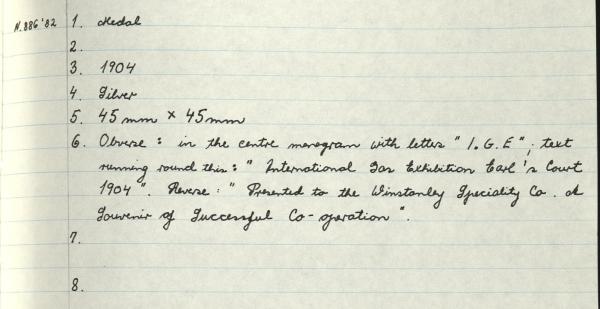 N.886'82 1. Medal
2.
3. 1904
4. Silver
5. 45 mm × 45mm
6. Obverse : in the centre monogram with letters " I.G.E" ; text
running round this : " International Gas Exhibition Earl's Court
1904 ". Reverse : " Presented to the Winstanley Speciality Co. A
Souvenir of Successful Co-operation ".
7.
8.